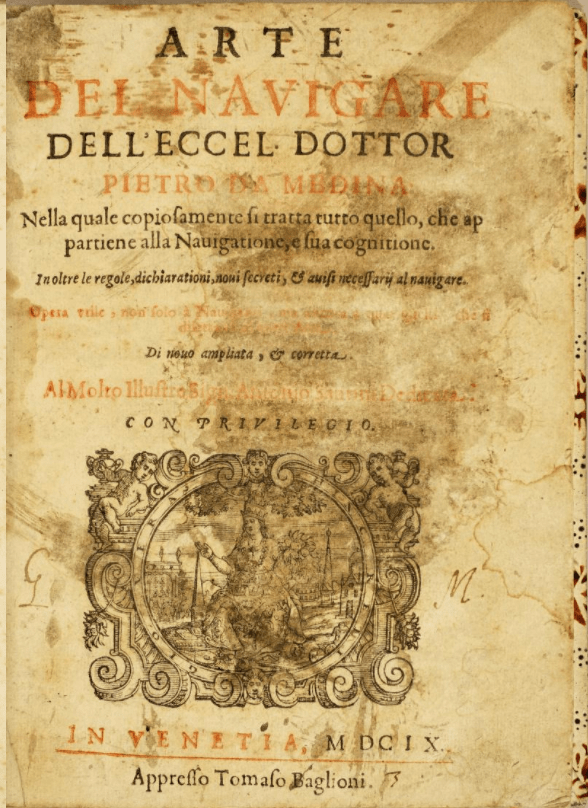 ARTE
DEL NAVIGARE
DELL'ECCEL. DOTTOR
PIETRO DA MEDINA.
Nella quale copiosamente si tratta tutto quello, che ap
partiene alla Nauigatione, e sua cognitione.
In oltre le regole, dichiarationi, noui secreti, & auisi necessarij al nauigare.
Opera vtile, non solo à che si
Di nouo ampliata, & corretta.
Al Molto Illustre
CON PRIVILEGIO.
G
M.
IN VENETIA, MDCIX.
Appresso Tomaso Baglioni.